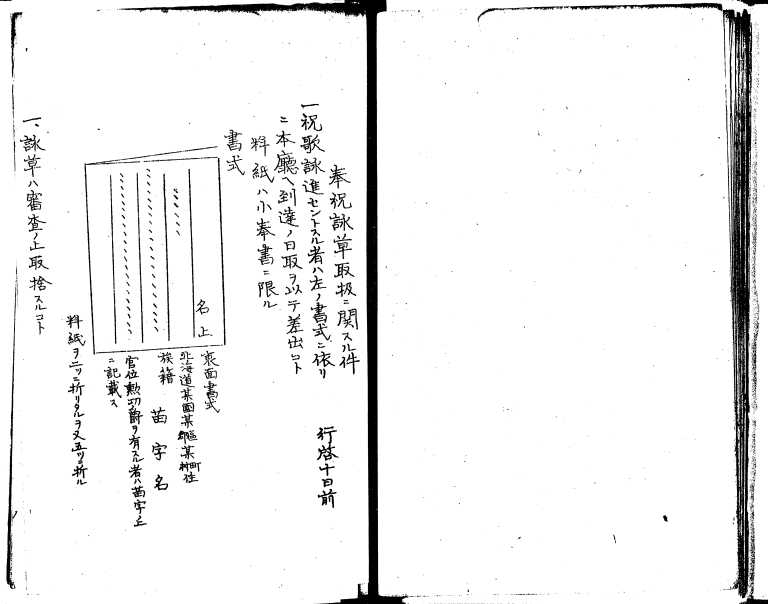 奉祝詠草取扱ニ関スル件
行啓十日前
一祝歌詠進セントスル者ハ左ノ書式ニ依リ
ニ本廳ヘ到達ノ日取ヲ以テ差出コト
料紙ハ小奉書ニ限ル
書式
名上
裏面書式
北海道某國某郡區某町村住
族籍 苗字名
官位勲功爵ヲ有スル者ハ苗字ノ上
ニ記載ス
料紙ヲ二ツニ折リタルヲ又五ツニ折ル
一、詠草ハ審査ノ上取捨スルコト